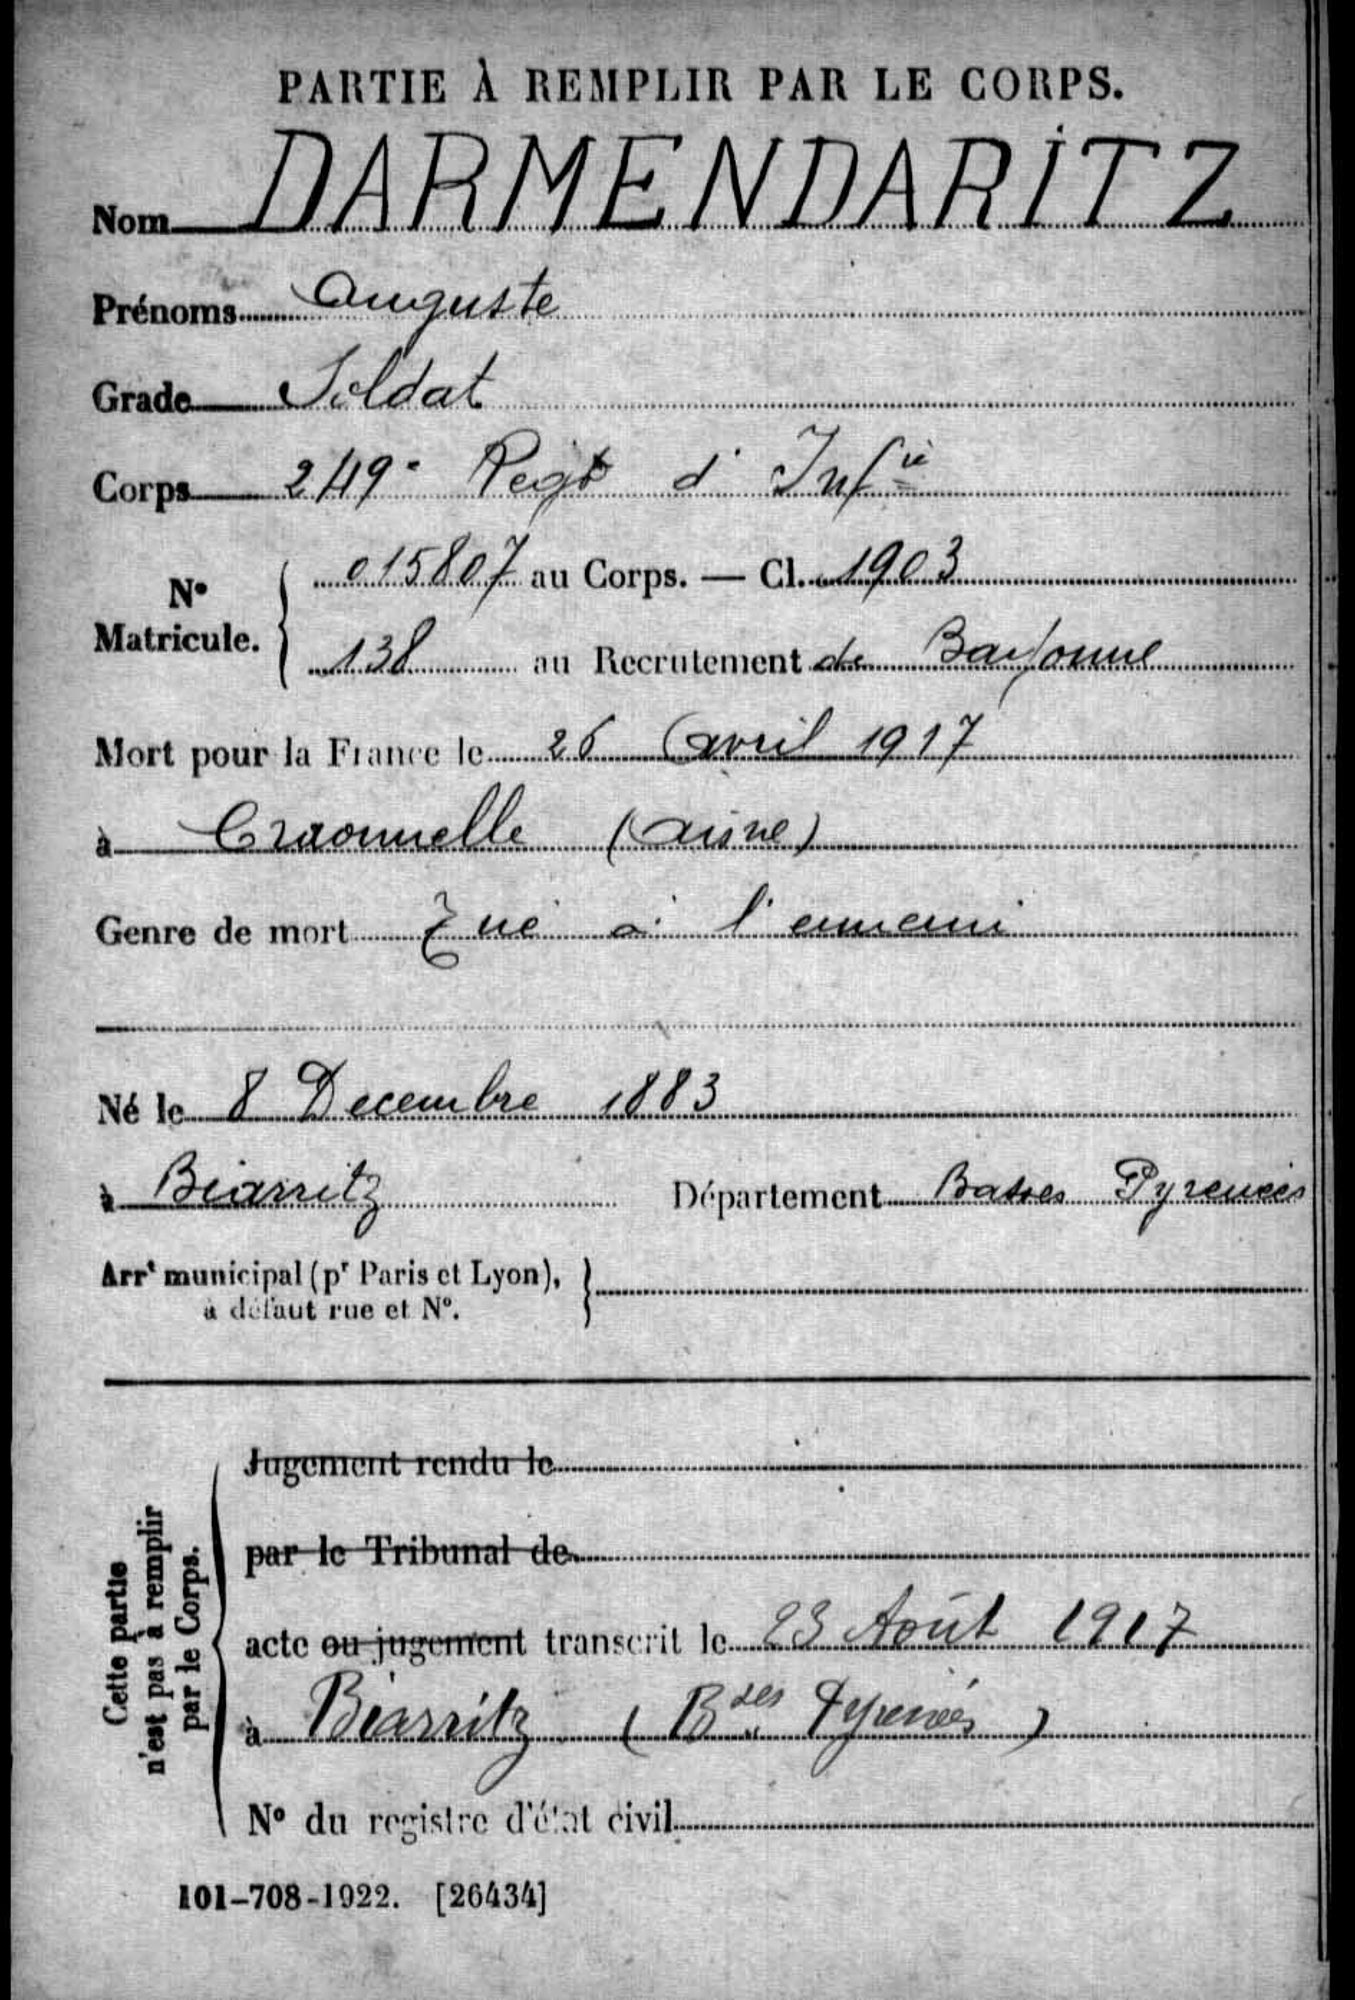 PARTIE À REMPLIR PAR LE CORPS.
Nom DARMENDARITZ
Prénoms Auguste
Grade Soldat
Corps 249e Regt d'Infie
N° Matricule.
015807 au Corps. — Cl. 1903
138 au Recrutement de Bayonne
Mort pour la France le 26 avril 1917
à Craonnelle (aisne)
Genre de mort Tué à l'ennemi
Né le 8 Decembre 1883
à Biarritz Département Basses Pyrenées
Arrt municipal (pr Paris et Lyon),
à défaut rue et N°.
Cette partie
n'est pas à remplir
par le Corps.
Jugement rendu le
par le Tribunal de
acte ou jugement transcrit le 23 Août 1917
à Biarritz (Bses Pyrenées)
N° du registre d'état civil
101-708-1922. [26434]